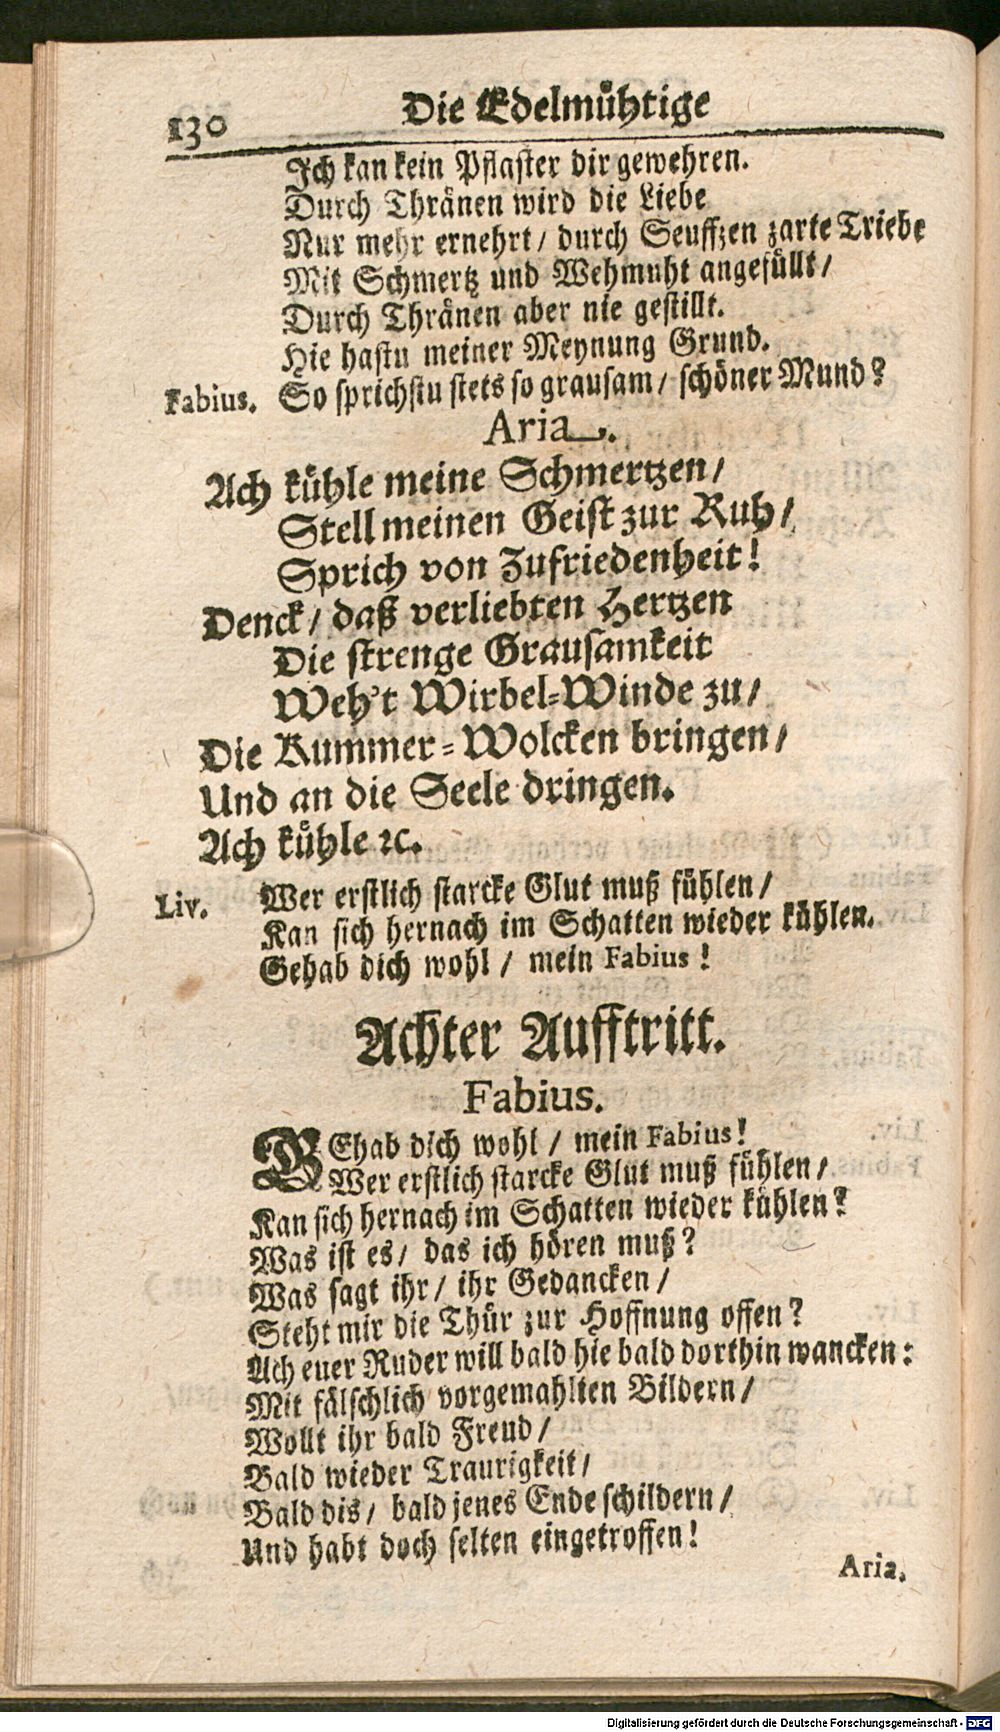 130
Die Edelmühtige
Ich kan kein Pflaster dir gewehren.
Durch Thränen wird die Liebe
Nur mehr ernehrt / durch Seuffzen zarte Triebe
Mit Schmertz und Wehmuht angefüllt /
Durch Thränen aber nie gestillt.
Hie hastu meiner Meynung Grund.
Fabius. So sprichstu stets so grausam / schöner Mund?
Aria.
Ach kühle meine Schmertzen /
Stell meinen Geist zur Ruh /
Sprich von Zufriedenheit!
Denck / daß verliebten Hertzen
Die strenge Grausamkeit
Weh't Wirbel-Winde zu /
Die Kummer-Wolcken bringen /
Und an die Seele dringen.
Ach kühle ꝛc.
Liv. Wer erstlich starcke Glut muß fühlen /
Kan sich hernach im Schatten wieder kühlen.
Gehab dich wohl / mein Fabius!
Achter Aufftritt.
Fabius.
GEhab dich wohl / mein Fabius!
Wer erstlich starcke Glut muß fühlen /
Kan sich hernach im Schatten wieder kühlen?
Was ist es / das ich hören muß?
Was sagt ihr / ihr Gedancken /
Steht mir die Thür zur Hoffnung offen?
Ach euer Ruder will bald hie bald dorthin wancken:
Mit fälschlich vorgemahlten Bildern /
Wollt ihr bald Freud /
Bald wieder Traurigkeit /
Bald dis / bald jenes Ende schildern /
Und habt doch selten eingetroffen!
Aria.
Digitalisierung gefördert durch die Deutsche Forschungsgemeinschaft - DFG